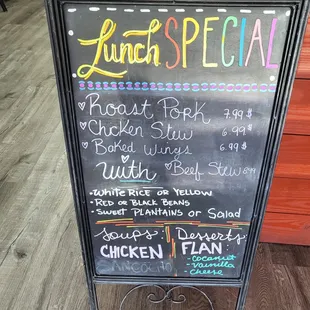 Lunch SPECIAL
Roast Pork 7.99$
Chicken Stew 6.99$
Baked Wings 6.99$
With Beef Stew 8.99
- White Rice or Yellow
- Red or Black Beans
- Sweet Plantains or Salad
Soups: Desserts:
CHICKEN FLAN:
- Coconut
SANCOCHO - Vainilla
- Cheese